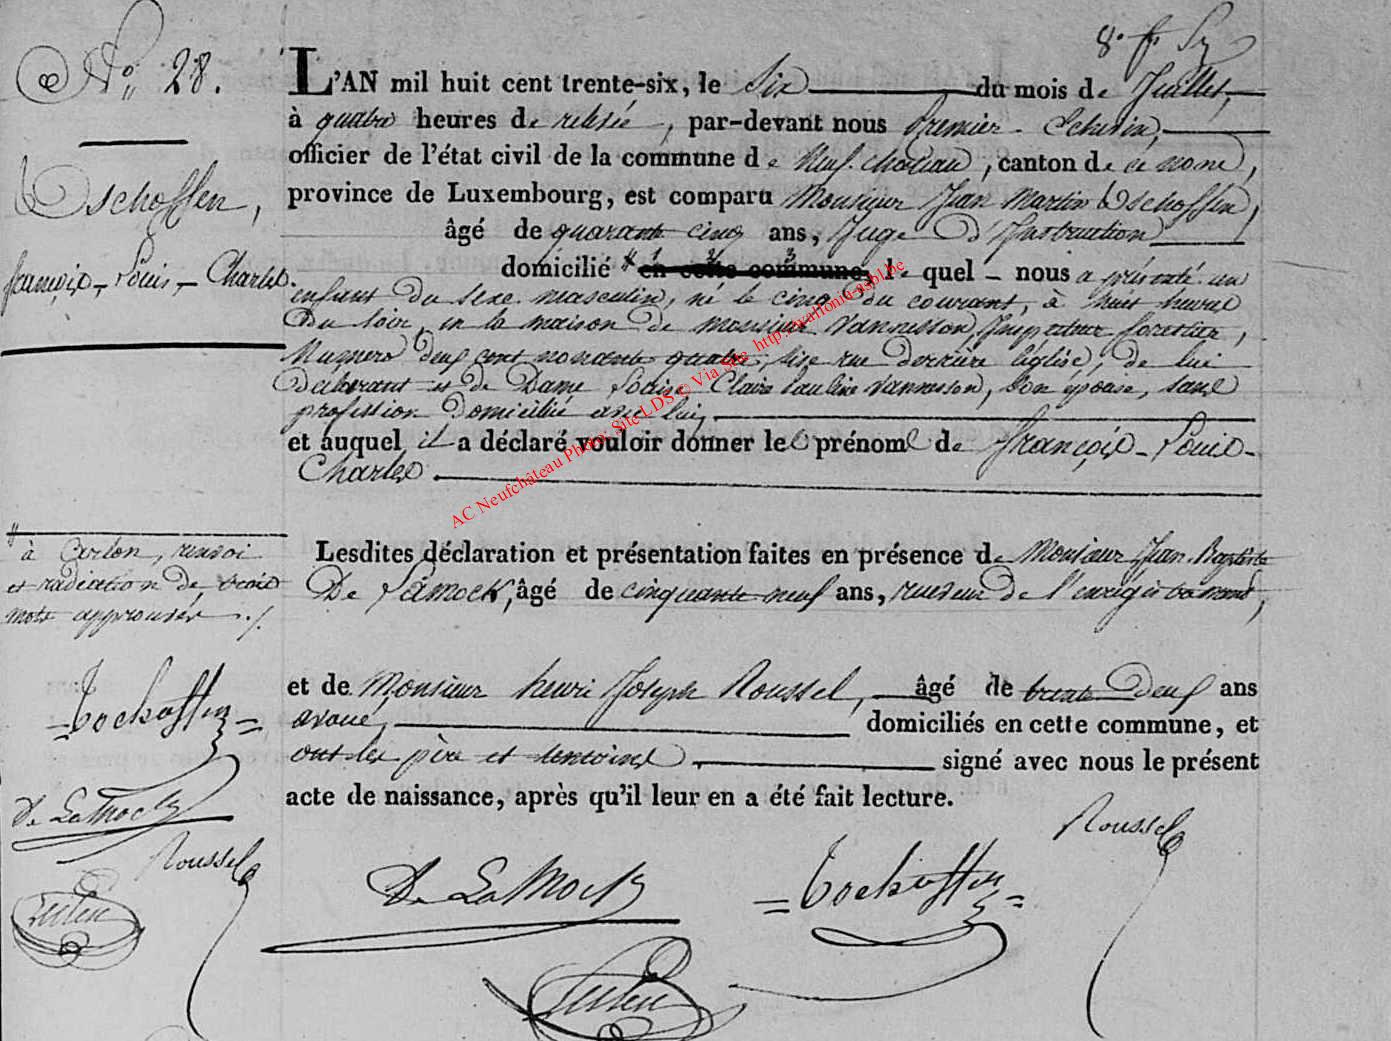 N° 28.
Tschoffen,
françois - Louis - Charles.
L'AN mil huit cent trente-six, le Six du mois de Juillet,
à quatre heures de relevée, par-devant nous Premier Echevin,
officier de l'état civil de la commune de Neufchateau, canton de ce nom,
province de Luxembourg, est comparu Monsieur Jean Martin Tschoffen,
âgé de quarante cinq ans, Juge d'Instruction
domicilié # en cette commune, le quel - nous a présenté un
enfant du sexe masculin, né le cinq du courant, à huit heures
du soir, en la maison de monsieur Vannesson, Inspecteur forestier,
Numero deux cent nonante quatre, sise rue derrière l'église, de lui
déclarant et de Dame Louise Claire Pauline Vannesson, son épouse, sans
profession domiciliée avec lui,
et auquel il a déclaré vouloir donner les prénoms de françois - Louis -
Charles
# à Arlon, renvoi
et radiation de trois
mots approuvés ./.
Lesdites déclaration et présentation faites en présence de Monsieur Jean-Baptiste
De Lamock, âgé de cinquante neuf ans, receveur de l'enrégistrement,
et de Monsieur henri Joseph Roussel, âgé de trente Deux ans
avoué, domiciliés en cette commune, et
ont les père et temoins signé avec nous le présent
acte de naissance, après qu'il leur en a été fait lecture.
=Tschoffen=
De LaMock
Roussel
De LaMock
=Tschoffen=
Roussel
AC Neufchâteau Photo: Site LDS © Via Site http://wallonia-asbl.be